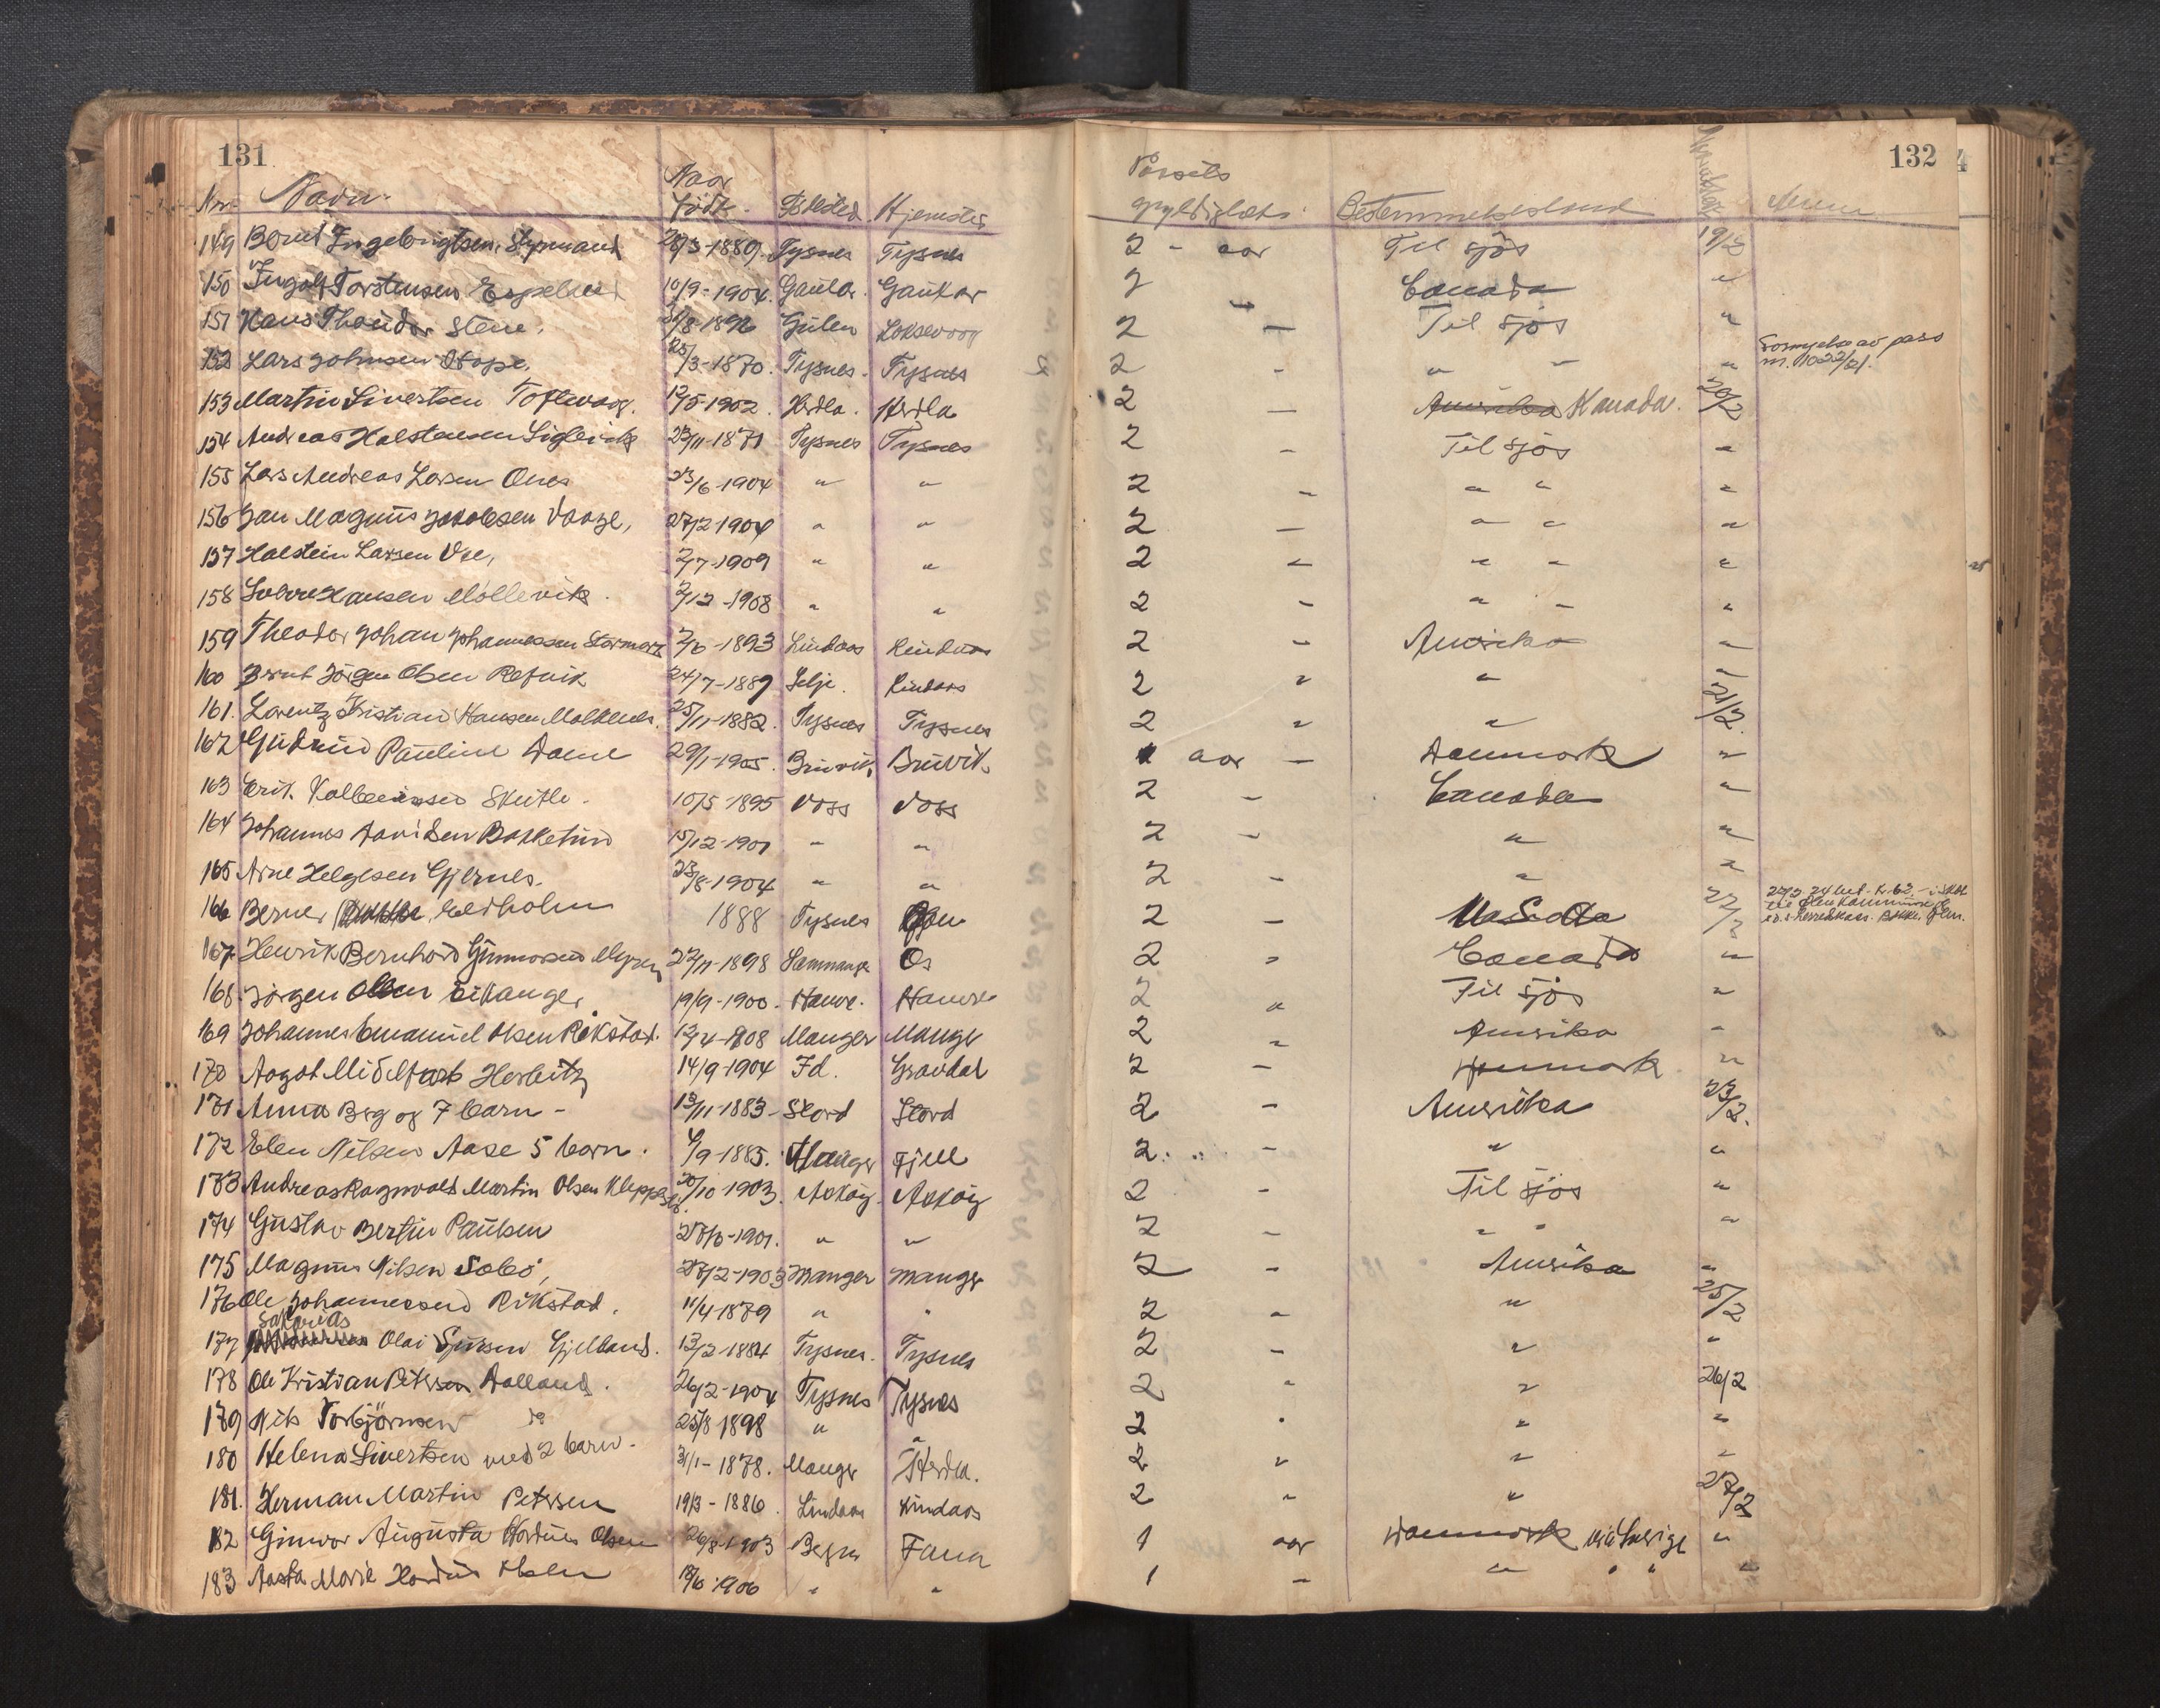 131
132
Nr. Navn. Naar födt. Fösted Hjemsted Passets gyldighets Bestemmelsesland Anm
149 Bernt Ingebrigtsen 28/3-1889. Tysnes Tysnes 2 - aar Til sjös 19/2
150 Ingolf Torstensen Espeland 10/9-1904. Gaular. Gaular 2 - Canada "
151 Hans Theodor Stene. /8-1896 Gulen 2 - Til sjös "
152 Lars Johnsen Hope. 25/3-1870. Tysnes. Tysnes 2 - " - " Fornyelse av pass nr. 1022/21.
153 Martin Sivertsen Toftevaag. 12/5-1902. Herdla. Herdla 2 - Amerika Kanada. 20/2
154 Andreas Halstensen 23/11-1871 Tysnes Tysnes 2 - Til sjös "
155 Lars Andreas Larsen Ones 23/6-1904 " " 2 - " " "
156 Jan Magnus Jakobsen Vaage, 27/2-1904 " " 2 - " " "
157 Halstein Larsen Vee, 2/7-1909 " " 2 - " - "
158 Sverre Hansen Möllevik. 2/12-1908 " " 2 - " - "
159 Theodor Johan Johannessen 2/6-1893 Lindaas Lindaas 2 - Amerika "
160 Bernt Jörgen Olsen Refvik 24/7-1889 Selje. Lindaas 2 " " "
161. Lorentz Kristian Hansen 25/11-1882. Tysnes Tysnes 2 " " 21/2
162 Gudrun Pauline Dame 29/1-1905. Bruvik, Bruvik. 1 aar - Danmark "
163 Erik. Kolbeinsen Skutle. 10/5-1895 Voss Voss 2 - Canada "
164 Johannes Davidsen Bakketun 15/12-1901 " " 2 - " "
165 Arne Helgesen Gjernes. 23/8-1904 " " 2 - " "
166 Berner Eidholm 1888 Tysnes 2 - 22/
167 Henrik Bernhard Gunnarsen 22/11-1898 Samnanger Os 2 " Canada "
168 Jörgen Olsen Eikanger 19/9-1900. Hamre. Hamre 2 " Til sjös "
169 Johannes Emanuel Olsen Rikstad. 12/4-1908 Manger Manger 2 " Amerika "
170 Aagot Midelfart Herbitz 14/9-1904 Fd. Gravdal 2 - Danmark "
171 Anna Berg og 7 barn - 13/11-1883- Stord Stord 2 - Amerika 23/2.
172 Elen Nilsen Aase 5 barn. /9-1885. Manger Fjell 2. - " "
173 Andreas Ragnvald Martin Olsen 30/10-1903. Asköy. Asköy 2 - Til sjös "
174 Gustav Bertin Paulsen -1901. " " 2 - " " "
175 Magnus Nilsen Solbö, 27/2-1903 Manger Manger 2 - Amerika "
176 Ole Johannessen Rikstad. 11/4-1879 " " 2 - " 25/2
Sakarias
177 Olai Sjursen Gjelland. 13/2-1884 Tysnes. Tysnes 2 - " "
178 Ole Kristian Petersen Dalland. 26/2-1904 Tysnes Tysnes 2 " " 26/2
179 Nils Torbjörnsen do 25/8 1898 " " 2 " " "
180 Helena Sivertsen med 2 barn. 31/1-1878. Manger Herdla. 2 " " "
181. Herman Martin Petersen 19/3-1886. Lindaas Lindaas 2 " " 27/2
182 Gunvor Augusta Hordnes Olsen 26/8-1903 Bergen Fana 1 aar Danmark via Sverige "
183 Aasta Marie Hordnes Olsen /6-1906 " " 1 - " " " "